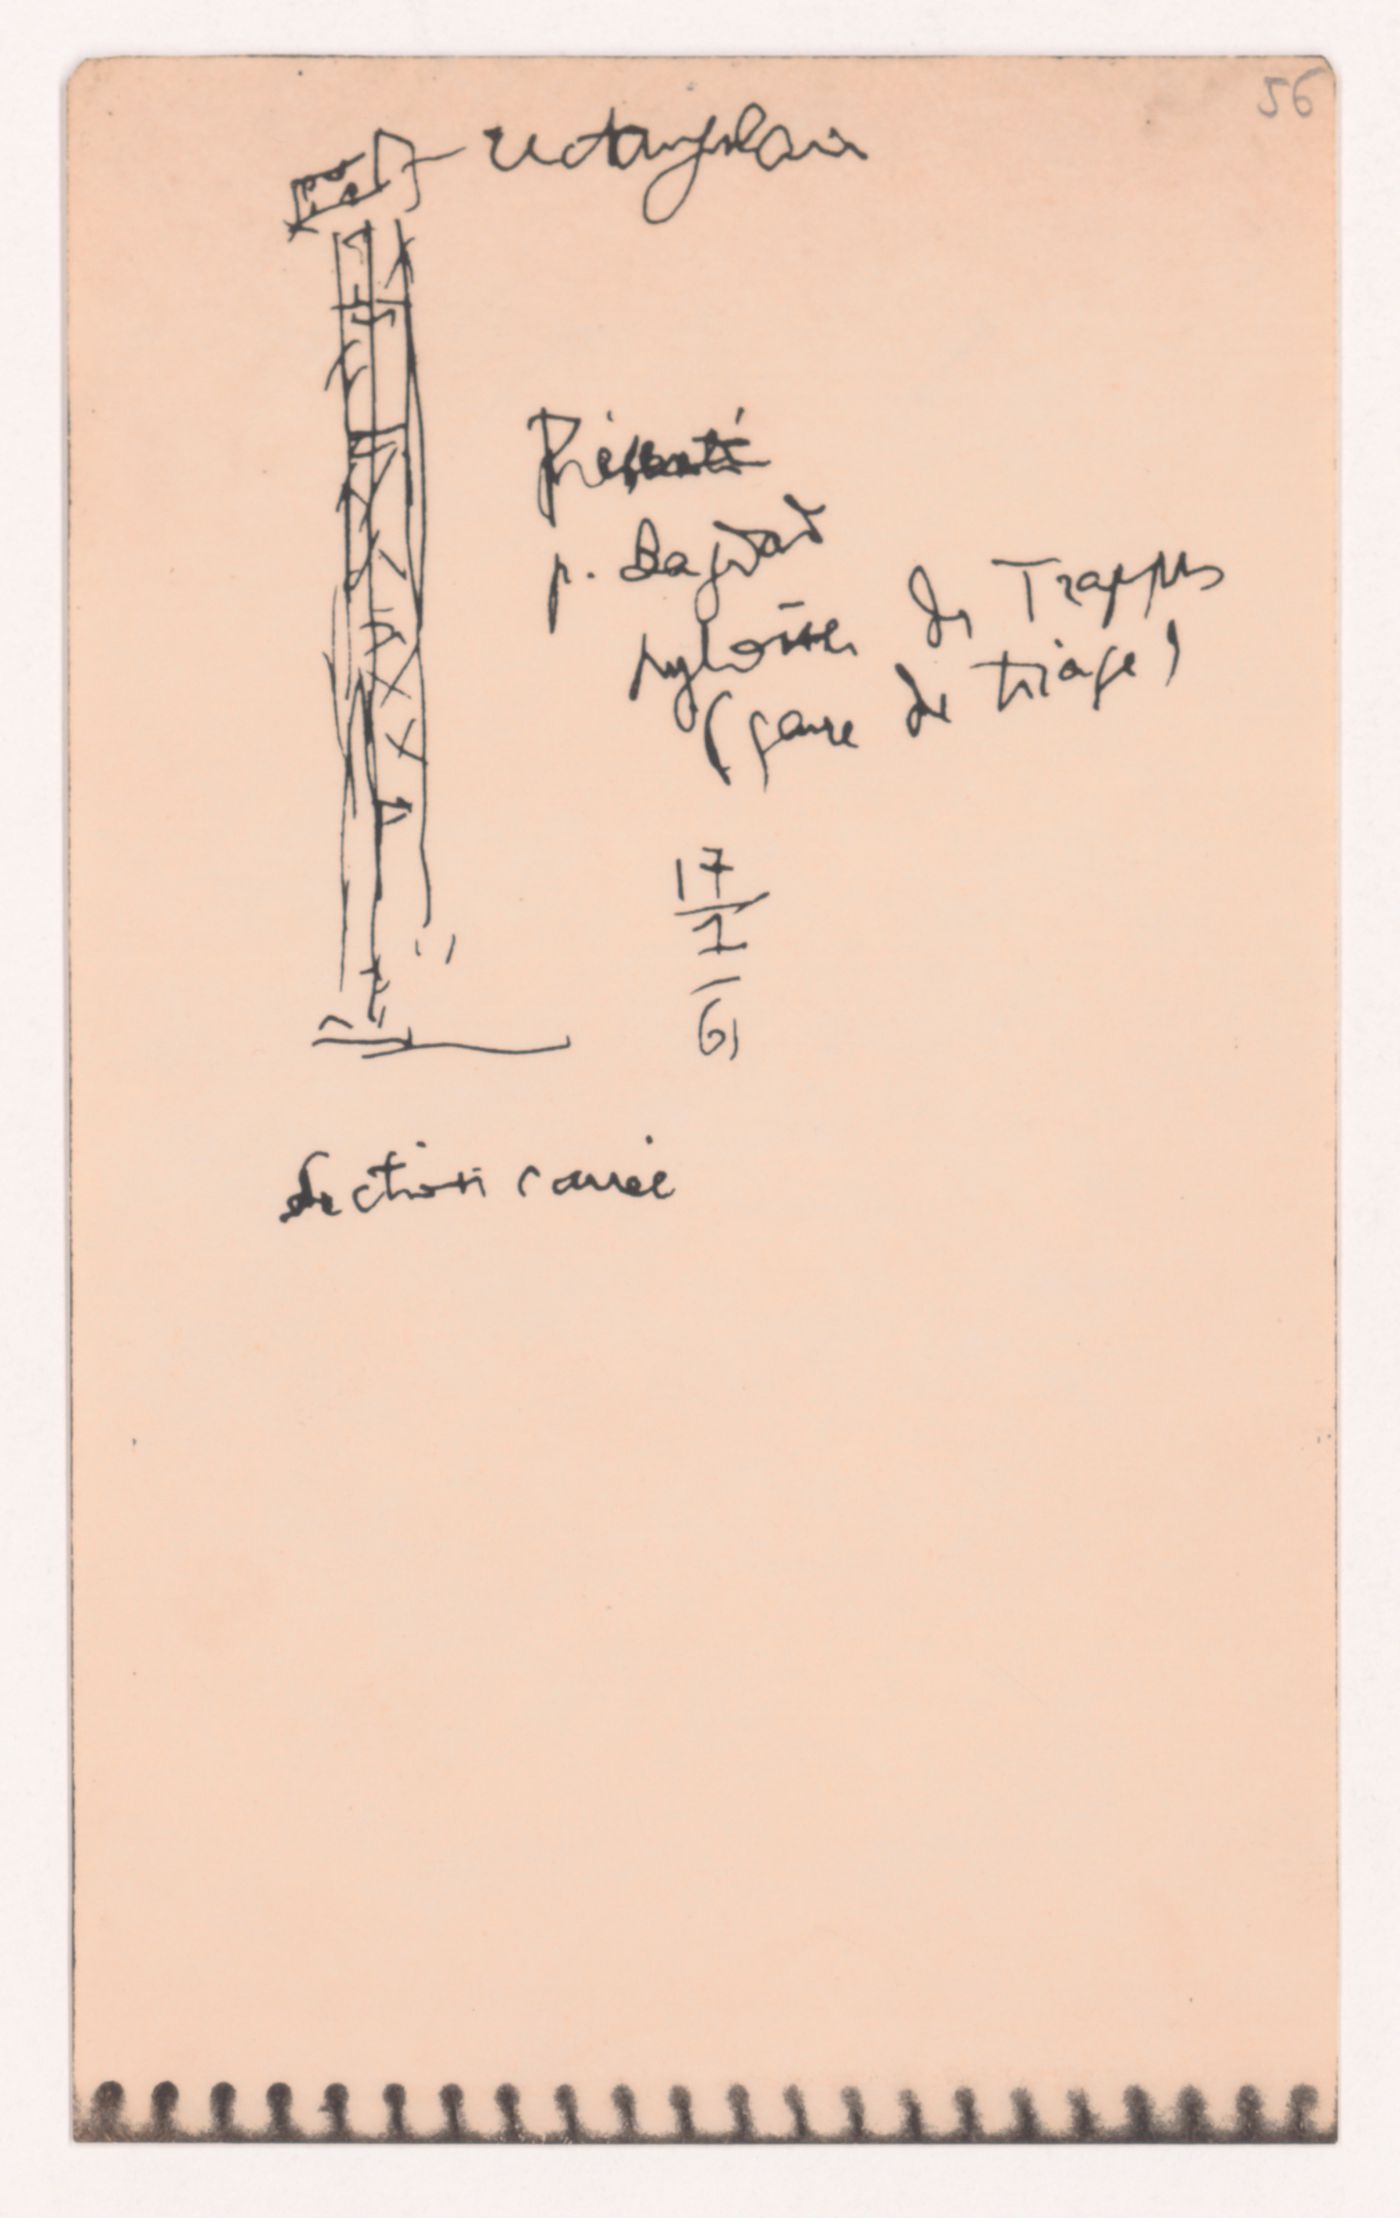 56
rectangulaire
p. Bagdad
pylônes de Trappes
(gare de triage)
17
1
61
Section carrée